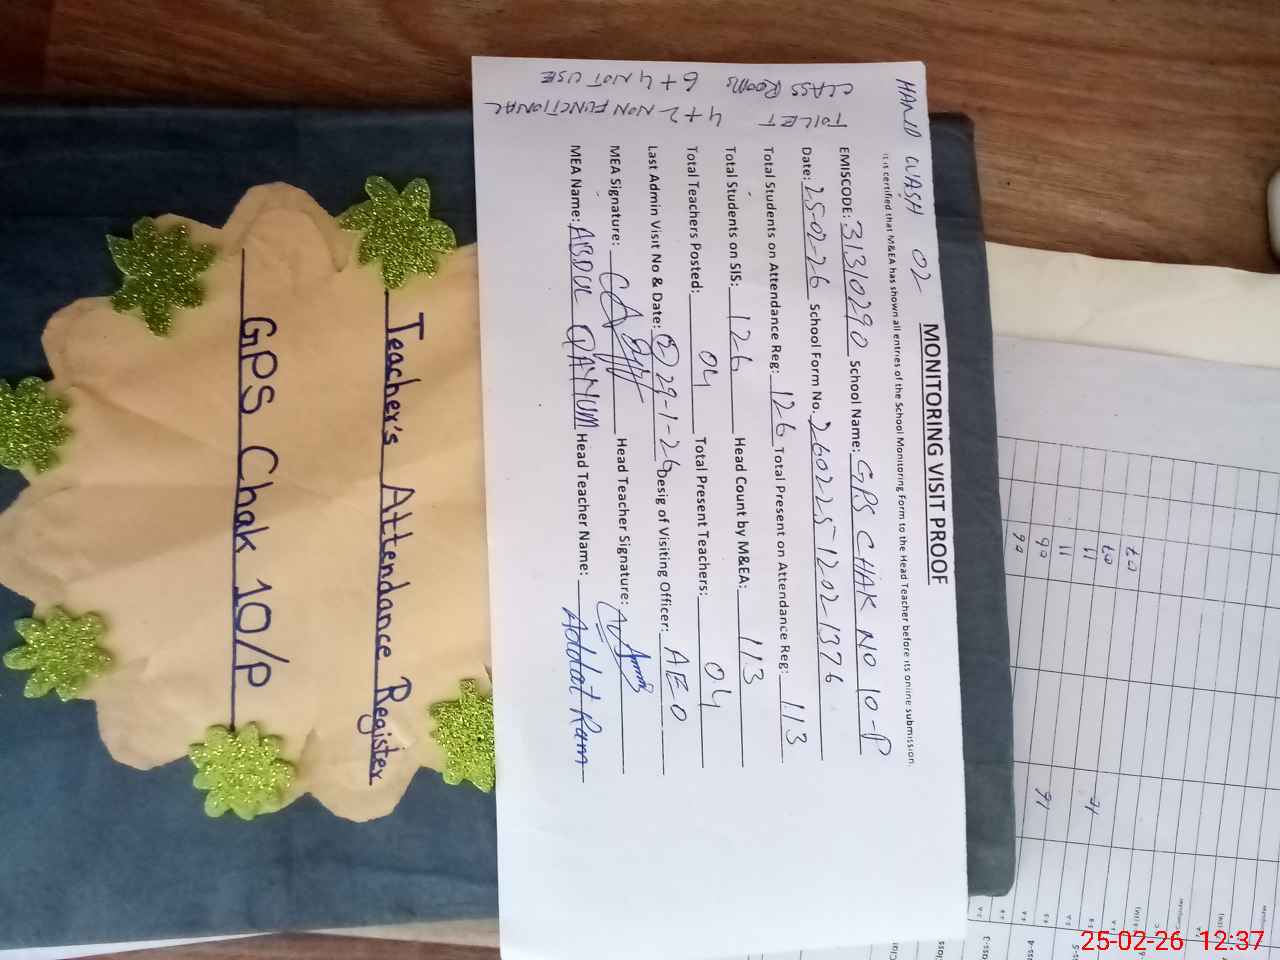 HAND WASH 02
MONITORING VISIT PROOF
It is certified that M&EA has shown all entries of the School Monitoring Form to the Head Teacher before its online submission.
EMISCODE: 31310290 School Name: GPS CHAK NO 10-P
Date: 25-02-26 School Form No. 26022512021376
Total Students on Attendance Reg: 126 Total Present on Attendance Reg: 113
Total Students on SIS: 126 Head Count by M&EA: 113
Total Teachers Posted: 04 Total Present Teachers: 04
Last Admin Visit No & Date: 29-1-26 Desig of Visiting Officer: AEO
MEA Signature: Head Teacher Signature:
MEA Name: ABDUL QAYUM Head Teacher Name: Addat Ram
CLASS ROOMS 6+4 NOT USE
TOILET 4+2 NON FUNCTIONAL
Teacher's Attendance Register
GPS Chak 10/P
25-02-26 12:37